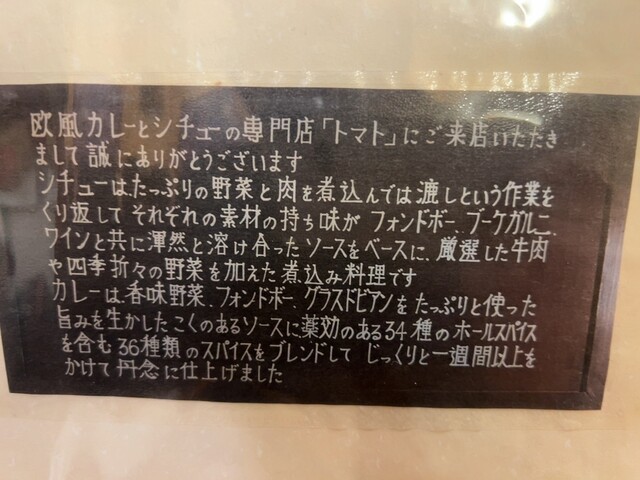 欧風カレーとシチューの専門店「トマト」にご来店いただき
まして誠にありがとうございます
シチューはたっぷりの野菜と肉を煮込んでは漉しという作業を
くり返してそれぞれの素材の持ち味が フォンドボー ブーケガルニ、
ワインと共に渾然と溶け合ったソースをベースに、厳選した牛肉
や四季折々の野菜を加えた煮込み料理です
カレーは、香味野菜、フォンドボー、グラスドビアンをたっぷりと使った
旨みを生かしたこくのあるソースに薬効のある34種のホールスパイス
を含む36種類のスパイスをブレンドして じっくりと一週間以上を
かけて丹念に仕上げました